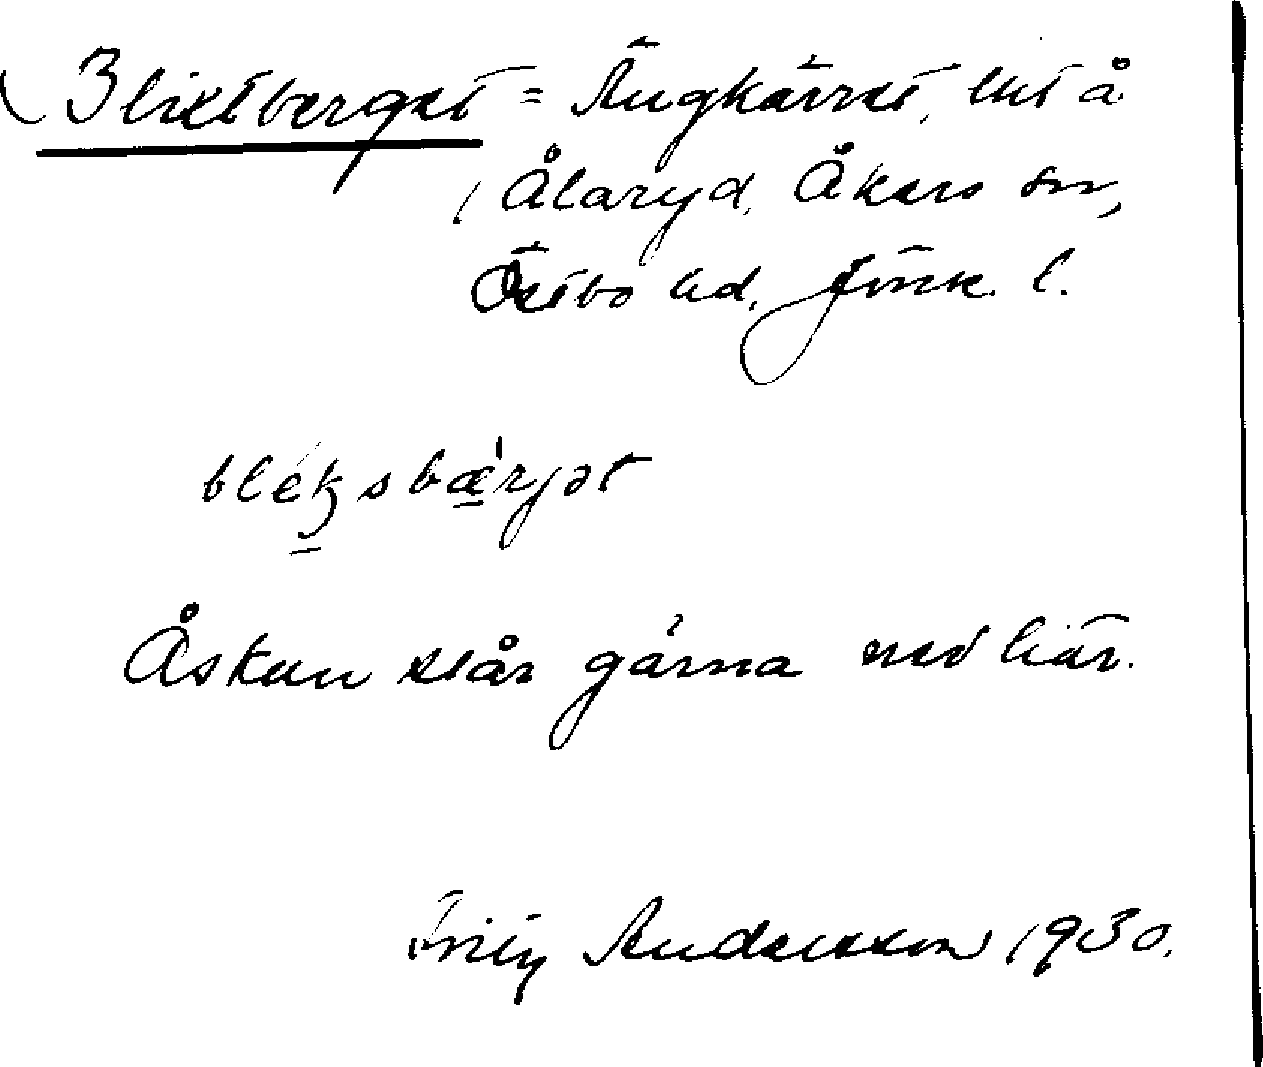 Blixtberget = Ängkärret, ut å
Ålaryd, Åkers sn,
Östbo hd, Jönk. l.
bleksbærjət
Åskan slår gärna ned här.
Fritz Andersson 1930.